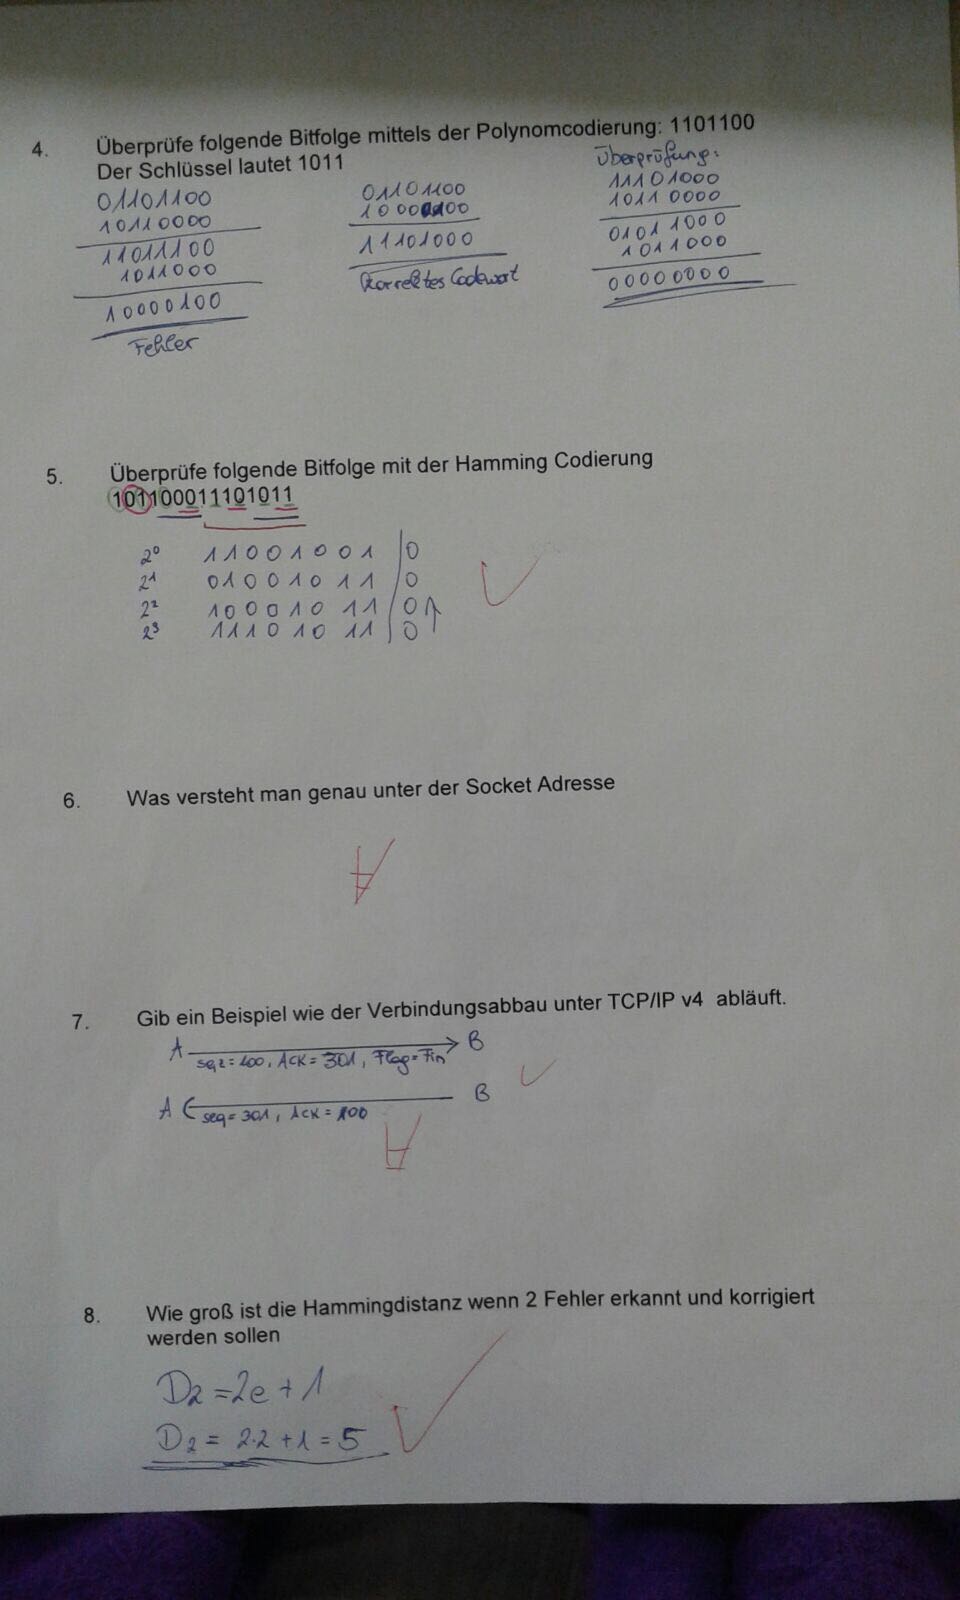 4. Überprüfe folgende Bitfolge mittels der Polynomcodierung: 1101100
Der Schlüssel lautet 1011
01101100
10110000
11011100
1011000
10000100
Fehler
01101100
10000100
11101000
Korrektes Codewort
Überprüfung:
11101000
10110000
01011000
1011000
00000000
5. Überprüfe folgende Bitfolge mit der Hamming Codierung
101100011101011
2⁰ 11001001 | 0
2¹ 01001011 | 0
2² 10001011 | 0
2³ 11101011 | 0
6. Was versteht man genau unter der Socket Adresse
7. Gib ein Beispiel wie der Verbindungsabbau unter TCP/IP v4 abläuft.
A B
seq=100, ACK=301, Flag=Fin
A B
seq=301, ACK=100
8. Wie groß ist die Hammingdistanz wenn 2 Fehler erkannt und korrigiert
werden sollen
D₂=2e+1
D₂=2·2+1=5